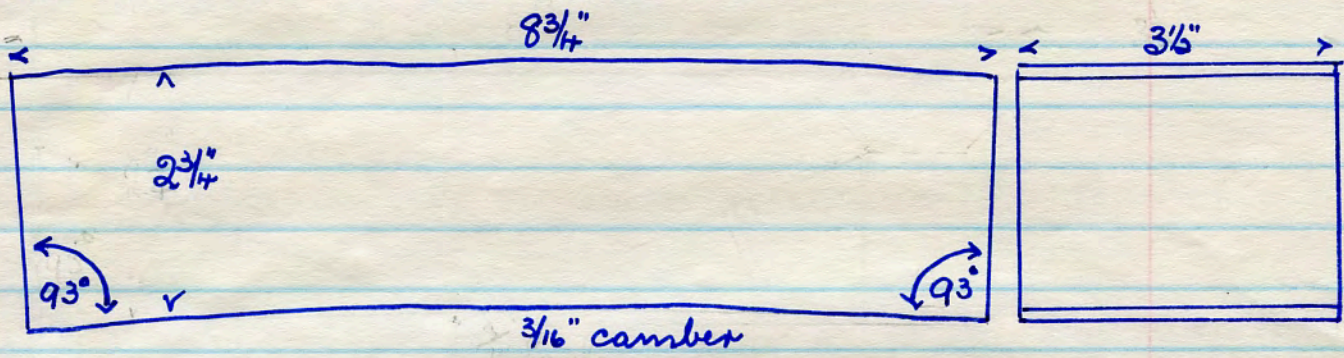 8 3/4"
3 1/2"
2 3/4"
93°
93°
3/16" camber